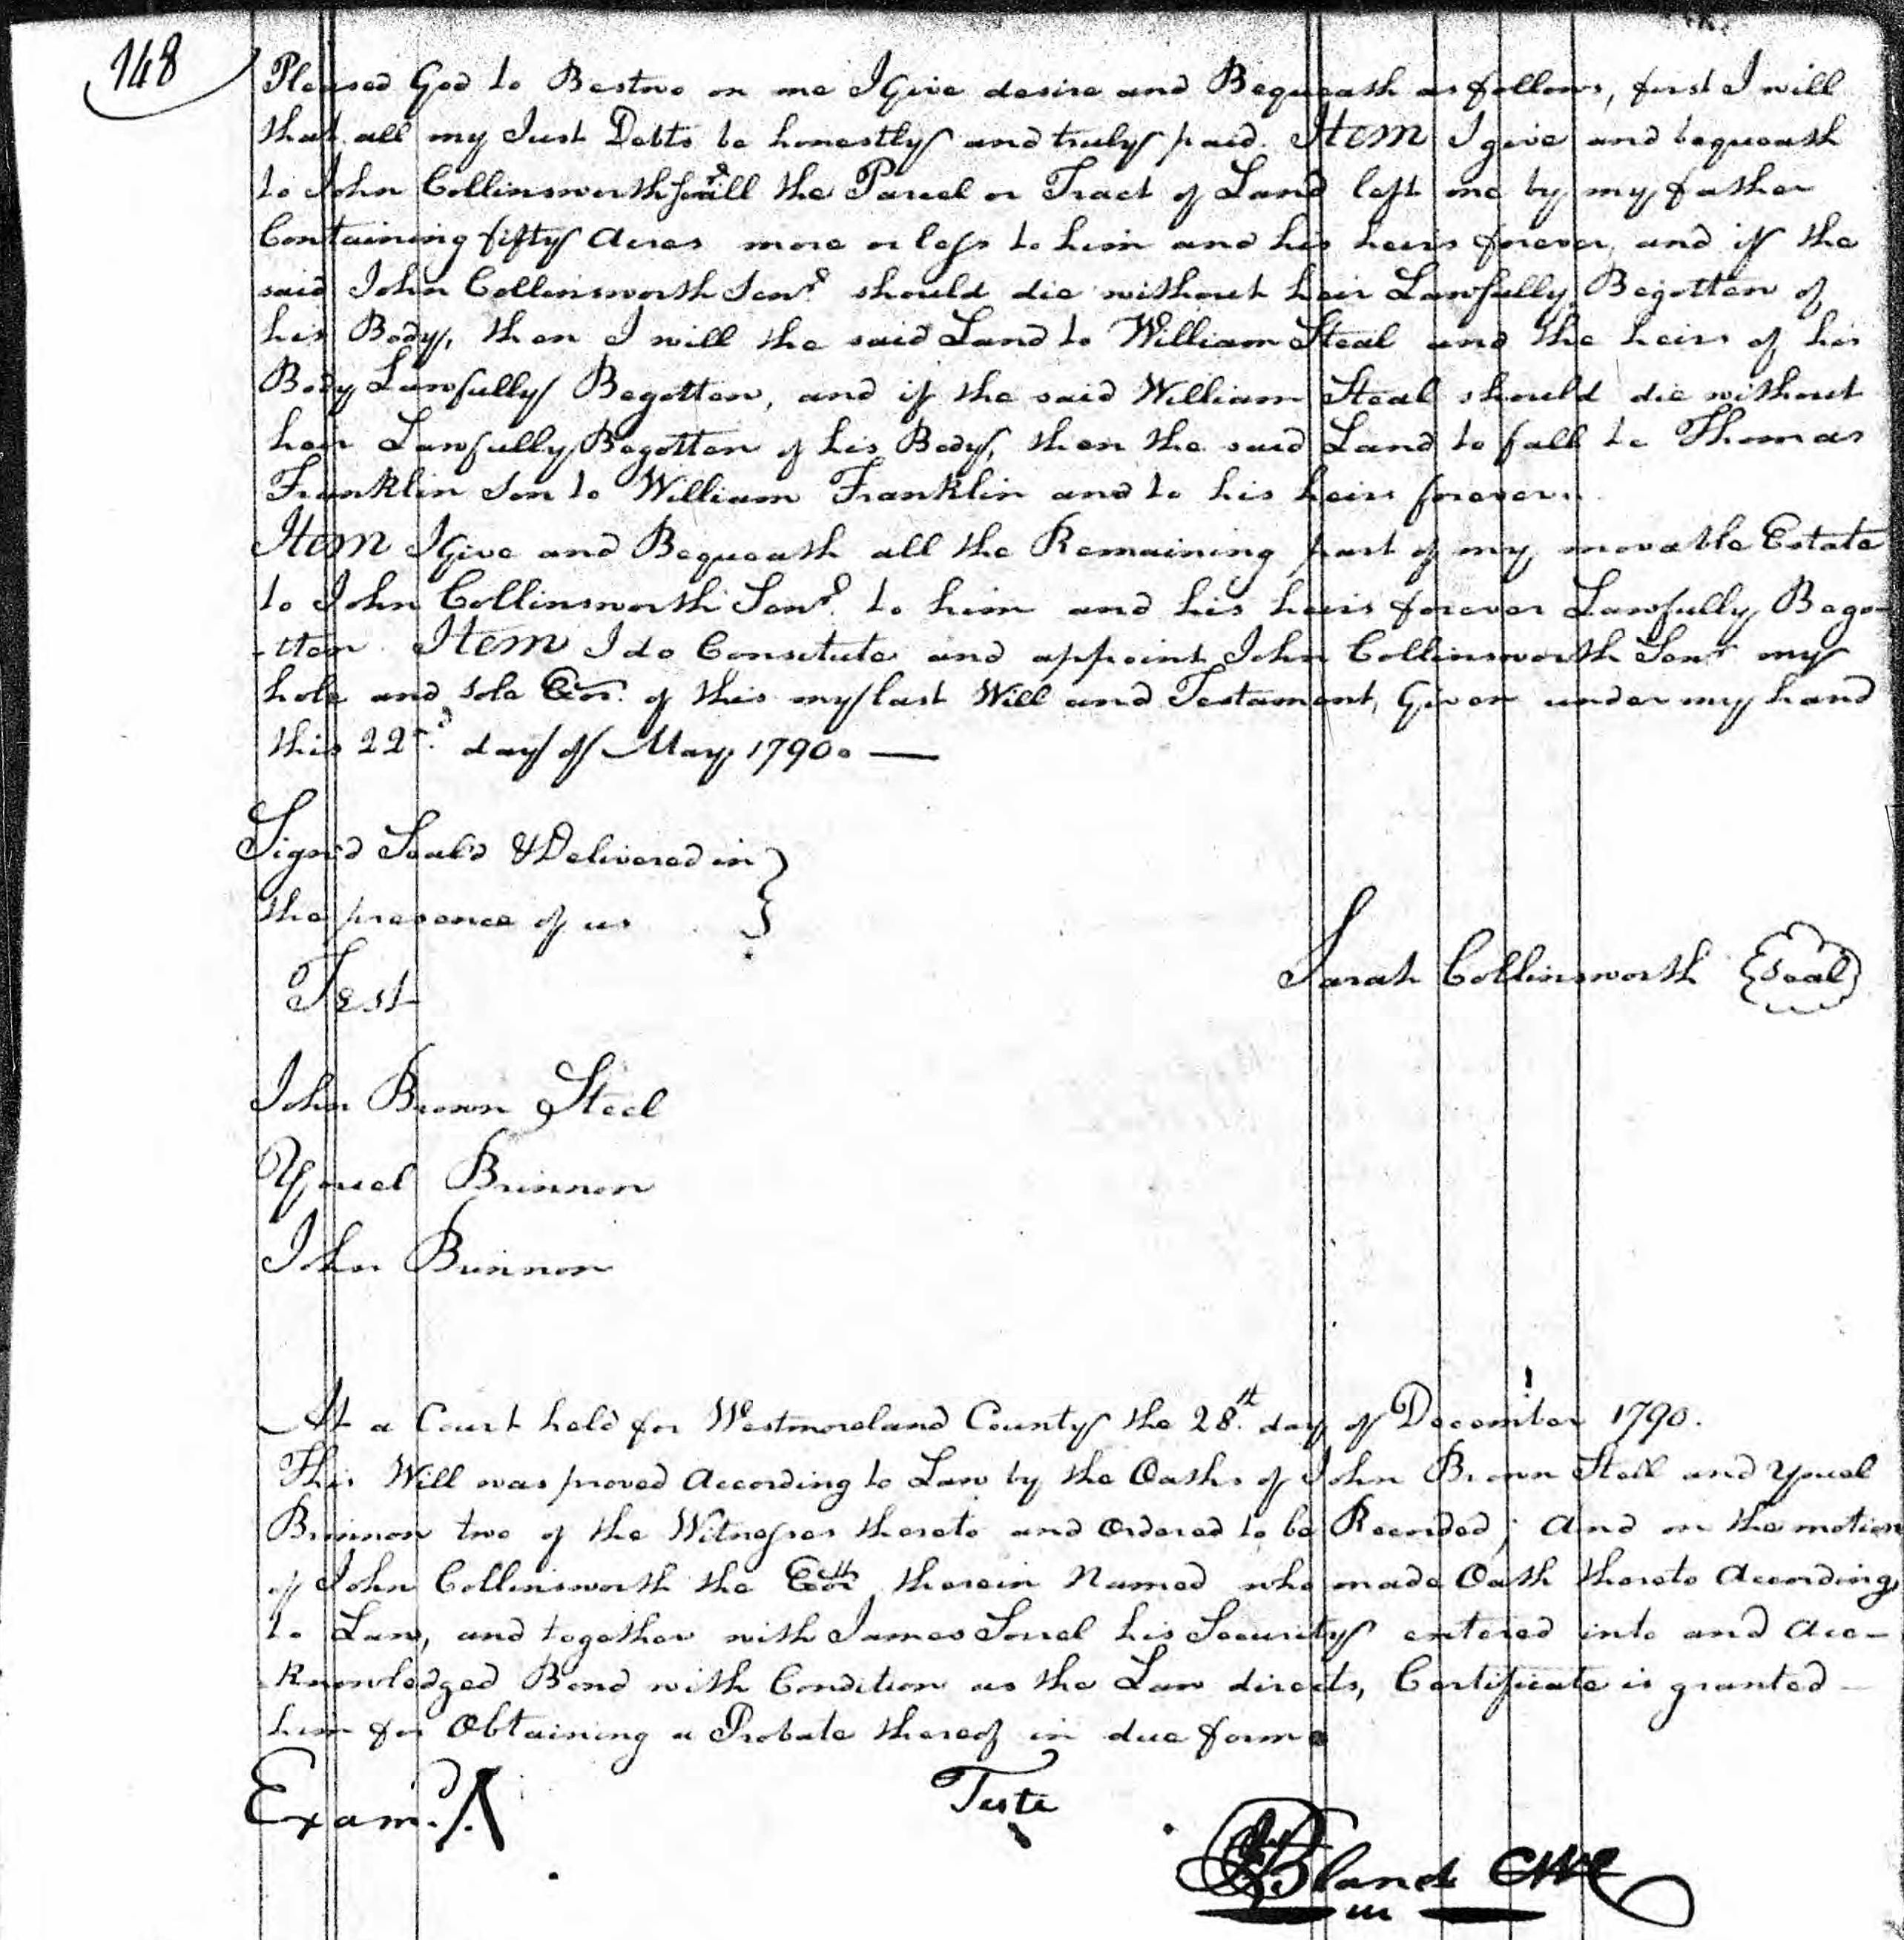 148
Pleased God to Bestwo on me I Give desire and Bequeath as follows, first I will
that all my Just Debts be honestly and truly paid. Item I give and bequeath
to John Collinsworth Senr. all the Parcel or Tract of Land left me by my father
Containing fifty Acres more or less to him and his heirs forever, and if the
said John Collinsworth Senr. should die without heir Lawfully Begotten of
his Body, then I will the said Land to William Steal and the heirs of his
Body Lawfully Begotten, and if the said William Steal should die without
heir Lawfully Begotten of his Body, then the said Land to fall to Thomas
Franklin Son to William Franklin and to his heirs forever.
Item I Give and Bequeath all the Remaining part of my movable Estate
to John Collinsworth Senr. to him and his heirs forever Lawfully Bego-
-tten. Item I do Constitute and appoint John Collinsworth Senr. my
hole and sole Exor. of this my last Will and Testament, Given under my hand
this 22nd. day of May 1790. —
Sign'd Seal'd & Delivered in
the presence of us
Sarah Collinsworth Seal
Test
John Brown Steel
Youel Brinnon
John Brinnon
At a Court held for Westmoreland County the 28th. day of December 1790.
This Will was proved According to Law by the Oaths of John Brown Stell and Youel
Brinnon two of the Witnesses thereto and Ordered to be Recorded; And on the motion
of John Collinsworth the Exor. therein Named who made Oath thereto According
to Law, and together with James Sorrel his Security entered into and Acc-
knowledged Bond with Condition as the Law directs, Certificate is granted -
him for Obtaining a Probate thereof in due form
Examd.
Teste
Bland CWC